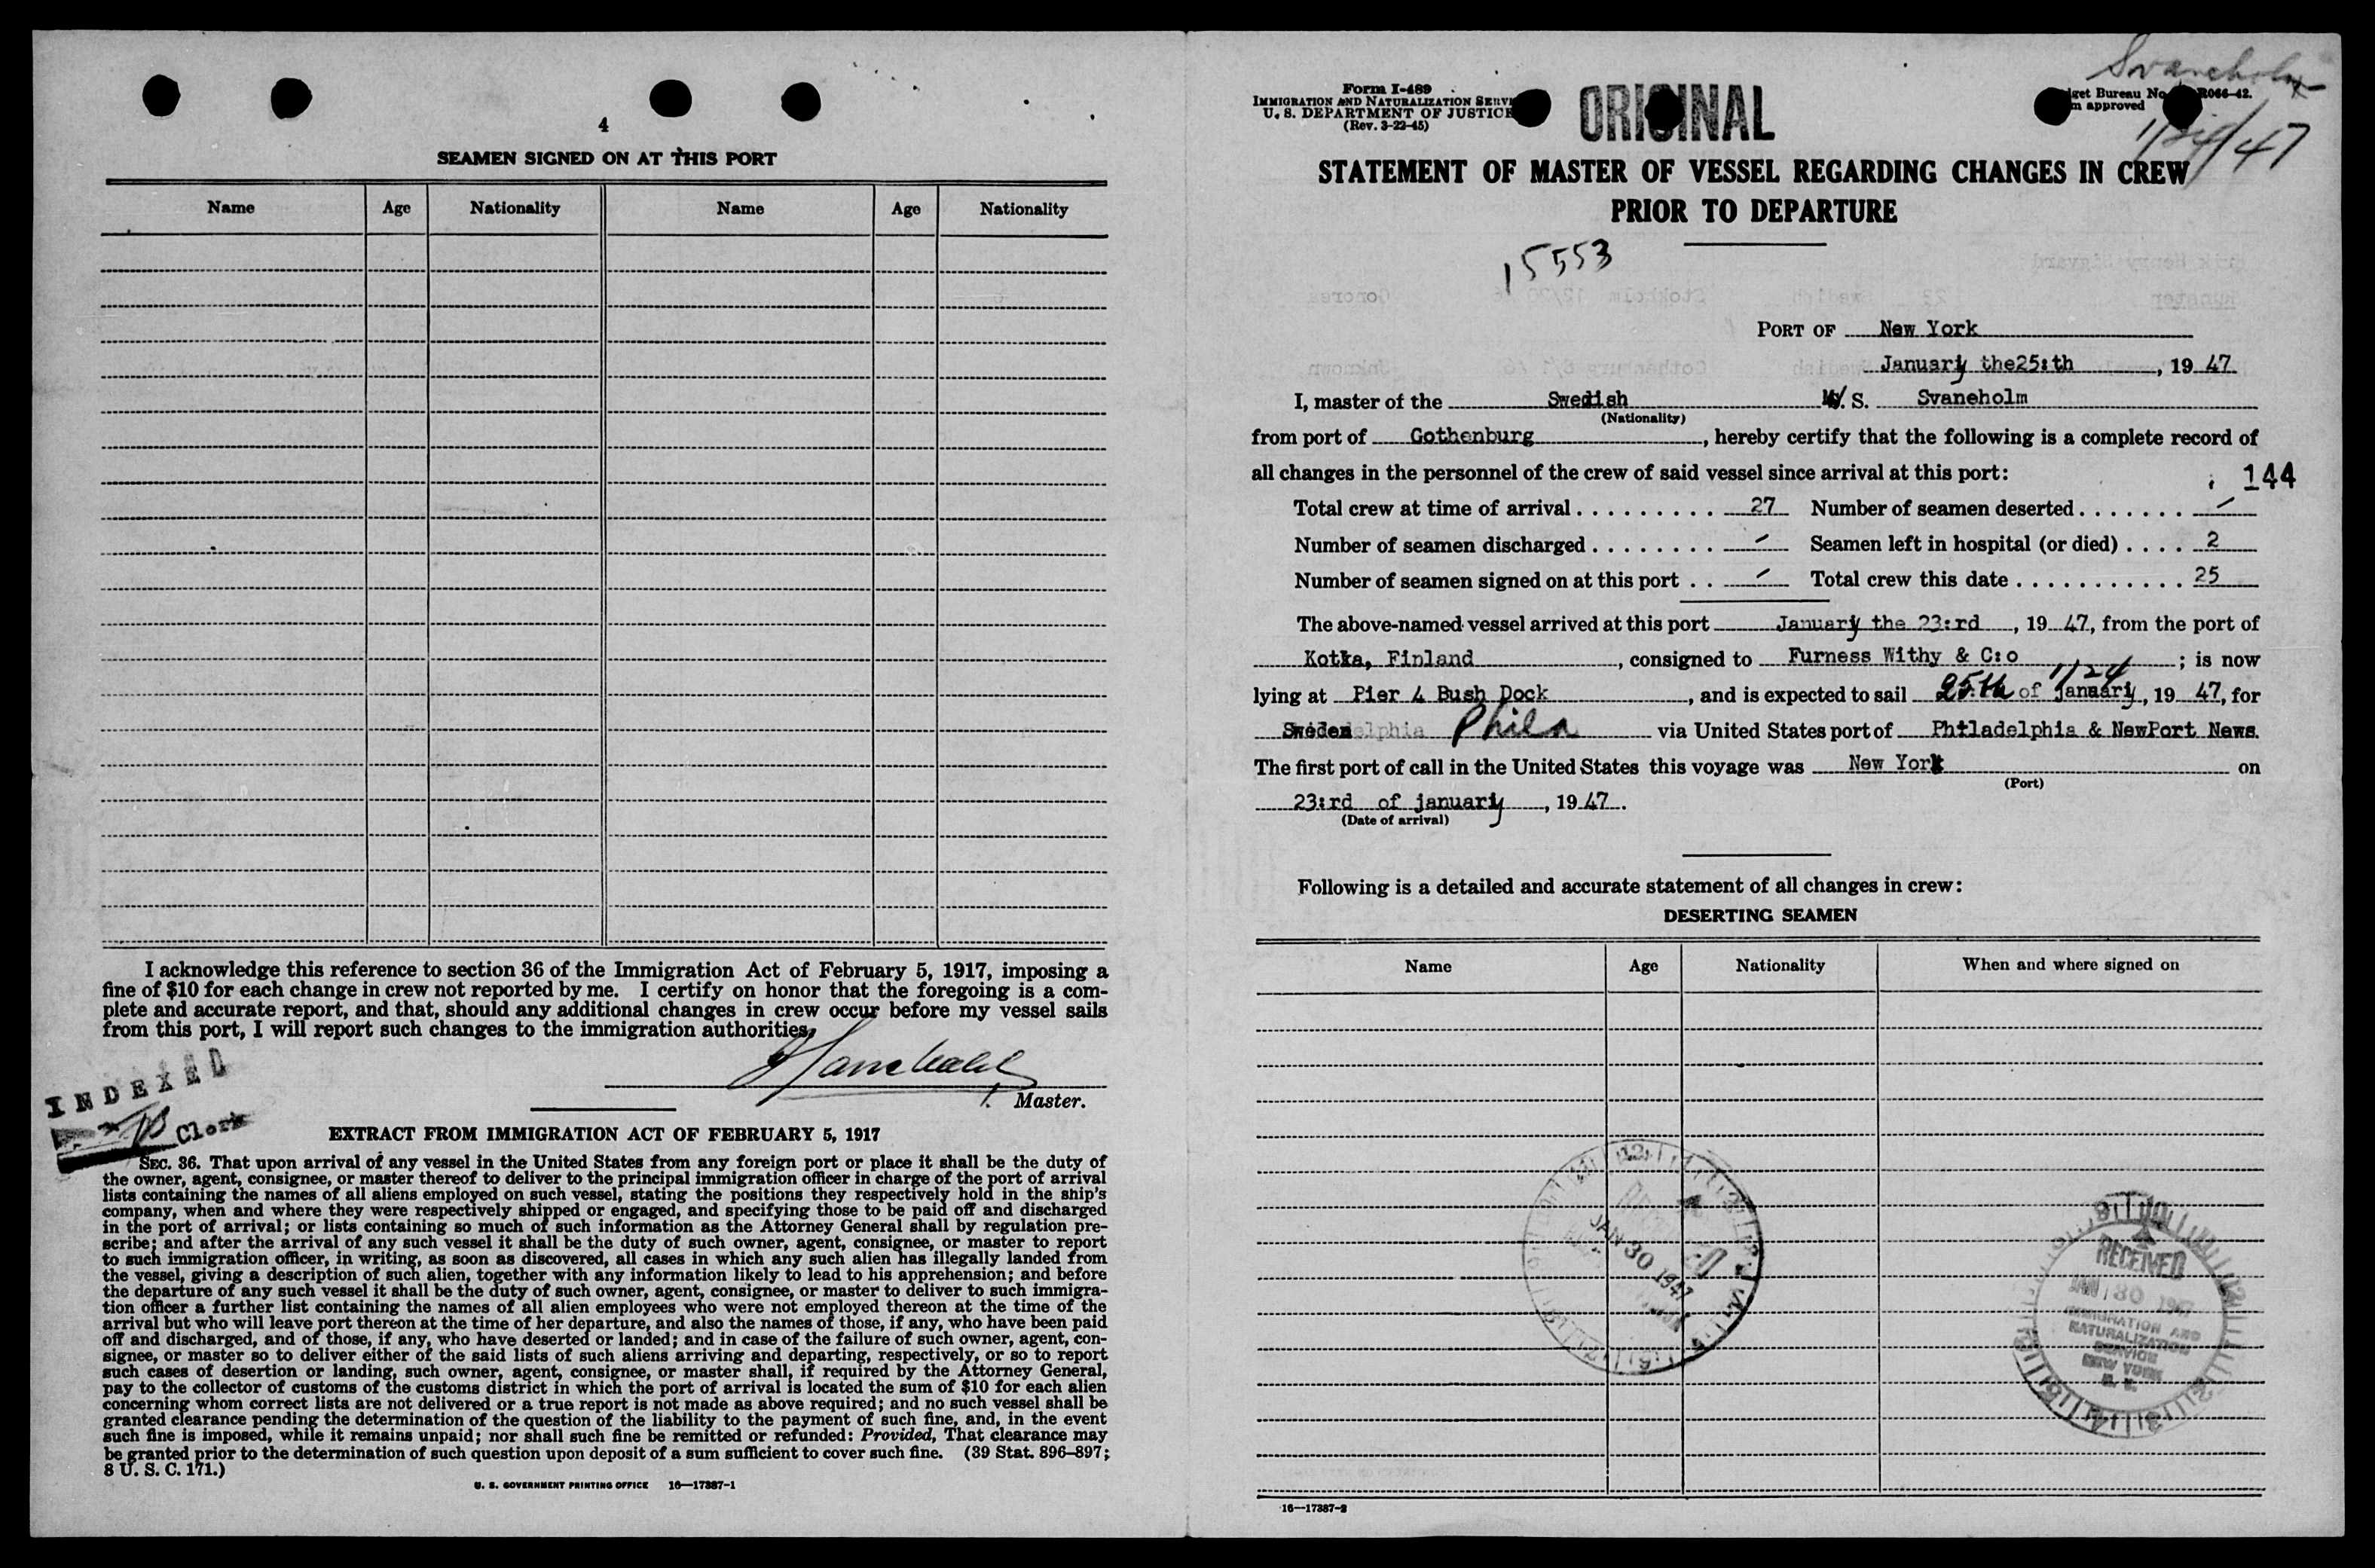 4
SEAMEN SIGNED ON AT THIS PORT
Name Age Nationality Name Age Nationality
I acknowledge this reference to section 36 of the Immigration Act of February 5, 1917, imposing a
fine of $10 for each change in crew not reported by me. I certify on honor that the foregoing is a com-
plete and accurate report, and that, should any additional changes in crew occur before my vessel sails
from this port, I will report such changes to the immigration authorities.
Master.
INDEXED
Clerk
EXTRACT FROM IMMIGRATION ACT OF FEBRUARY 5, 1917
SEC. 36. That upon arrival of any vessel in the United States from any foreign port or place it shall be the duty of
the owner, agent, consignee, or master thereof to deliver to the principal immigration officer in charge of the port of arrival
lists containing the names of all aliens employed on such vessel, stating the positions they respectively hold in the ship's
company, when and where they were respectively shipped or engaged, and specifying those to be paid off and discharged
in the port of arrival; or lists containing so much of such information as the Attorney General shall by regulation pre-
scribe; and after the arrival of any such vessel it shall be the duty of such owner, agent, consignee, or master to report
to such immigration officer, in writing, as soon as discovered, all cases in which any such alien has illegally landed from
the vessel, giving a description of such alien, together with any information likely to lead to his apprehension; and before
the departure of any such vessel it shall be the duty of such owner, agent, consignee, or master to deliver to such immigra-
tion officer a further list containing the names of all alien employees who were not employed thereon at the time of the
arrival but who will leave port thereon at the time of her departure, and also the names of those, if any, who have been paid
off and discharged, and of those, if any, who have deserted or landed; and in case of the failure of such owner, agent, con-
signee, or master so to deliver either of the said lists of such aliens arriving and departing, respectively, or so to report
such cases of desertion or landing, such owner, agent, consignee, or master shall, if required by the Attorney General,
pay to the collector of customs of the customs district in which the port of arrival is located the sum of $10 for each alien
concerning whom correct lists are not delivered or a true report is not made as above required; and no such vessel shall be
granted clearance pending the determination of the question of the liability to the payment of such fine, and, in the event
such fine is imposed, while it remains unpaid; nor shall such fine be remitted or refunded: Provided, That clearance may
be granted prior to the determination of such question upon deposit of a sum sufficient to cover such fine. (39 Stat. 896–897;
8 U. S. C. 171.)
U. S. GOVERNMENT PRINTING OFFICE 16—17387-1
Svaneholm
1/24/47
Form I-489
IMMIGRATION AND NATURALIZATION SERVI
U. S. DEPARTMENT OF JUSTICE
(Rev. 3-22-45)
ORIGINAL
get Bureau No. R066-42.
m approved
STATEMENT OF MASTER OF VESSEL REGARDING CHANGES IN CREW
PRIOR TO DEPARTURE
15553
PORT OF New York
January the25:th, 19 47
I, master of the Swedish M. S. Svaneholm
(Nationality)
from port of Gothenburg, hereby certify that the following is a complete record of
all changes in the personnel of the crew of said vessel since arrival at this port:
144
Total crew at time of arrival 27 Number of seamen deserted -
Number of seamen discharged - Seamen left in hospital (or died) 2
Number of seamen signed on at this port - Total crew this date 25
The above-named vessel arrived at this port January the 23:rd, 19 47, from the port of
Kotka, Finland, consigned to Furness Withy & C:o; is now
1/24
lying at Pier 4 Bush Dock, and is expected to sail 25th of January, 19 47, for
Sweden Phila via United States port of Philadelphia & NewPort News.
The first port of call in the United States this voyage was New York on
(Port)
23:rd of january, 19 47.
(Date of arrival)
Following is a detailed and accurate statement of all changes in crew:
DESERTING SEAMEN
Name Age Nationality When and where signed on
RECEIVED
JAN 30 1947
RECEIVED
JAN 30 1947
IMMIGRATION AND
NATURALIZATION
SERVICE
NEW YORK
N. Y.
16—17387-2